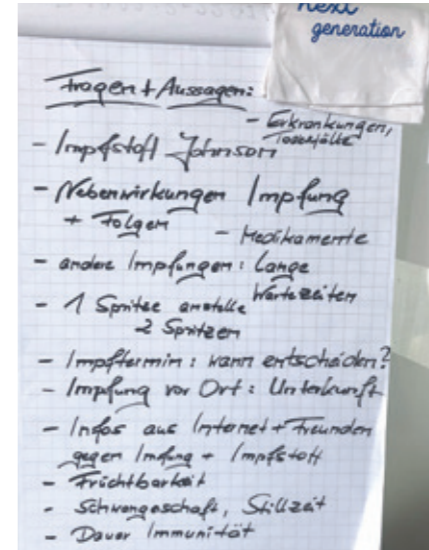 next
generation
Fragen + Aussagen:
- Erkrankungen,
Todesfälle
- Impfstoff Johnson
- Nebenwirkungen Impfung
+ Folgen
- Medikamente
- andere Impfungen: Lange
Wartezeiten
- 1 Spritze anstelle
2 Spritzen
- Impftermin: wann entscheiden?
- Impfung vor Ort: Unterkunft
- Infos aus Internet + Freunden
gegen Impfung + Impfstoff
- Fruchtbarkeit
- Schwangerschaft, Stillzeit
- Dauer Immunität